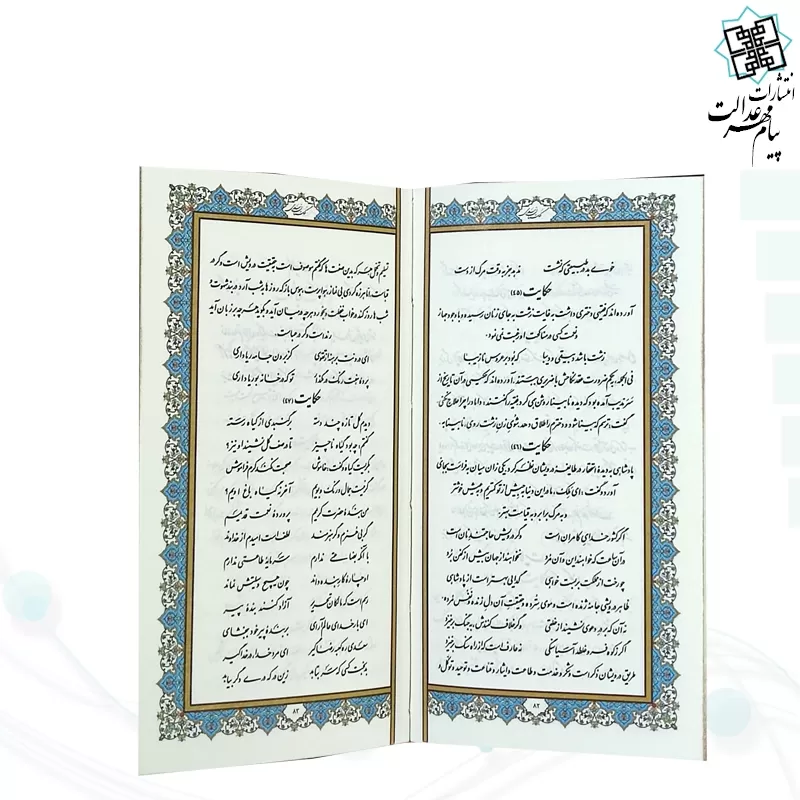 انتشارات
پیام مهر عدالت
خوی بد در طبیعتی که نشست ندهد جز به وقت مرگ از دست
حکایت (۴۵)
آورده‌اند که فقیهی دختری داشت به غایت زشت به جای زنان رسیده و با وجود جهاز
و نعمت کسی در مناکحت او رغبت نمی‌نمود
زشت باشد دبیقی و دیبا که بود بر عروس نازیبا
فی الجمله، بحکم ضرورت عقد نکاحش با ضریری ببستند. آورده‌اند که حکیمی در آن تاریخ از
سرندیب آمده بود که دیده نابینا روشن همی‌کرد. فقیه را گفتند، داماد را چرا علاج نکنی؟
گفت، ترسم که بینا شود و دخترم را طلاق دهد. شوی زن زشت روی، نابینا به.
حکایت (۴۶)
پادشاهی به دیده استحقار در طایفه درویشان نظر کرد. یکی زان میان به فراست بجای
آورد و گفت، ای ملک، ما درین دنیا به جیش از تو کمتریم و به عیش خوشتر
و به مرگ برابر و به قیامت بهتر.
اگر کشور خدای کامران است وگر درویش حاجتمند نان است
در آن ساعت که خواهند این و آن مرد نخواهند از جهان بیش از کفن برد
چو رخت از مملکت بربست خواهی گدایی بهتر است از پادشاهی
ظاهر درویشی جامه ژنده است و موی سترده و حقیقت آن دل زنده و نفس مرده.
نه آن که بر در دعوی نشیند از خلقی وگر خلاف کنندش به جنگ برخیزد
اگر ز کوه فرو غلطد آسیا سنگی نه عارف است که از راه سنگ برخیزد
طریق درویشان ذکر است و شکر و خدمت و طاعت و ایثار و قناعت و توحید و توکل و
۸۲
تسلیم و تحمل. هر که بدین صفت‌ها که گفتم موصوف است به حقیقت درویش است وگر در
قباست. اما هرزه‌گردی بی‌نماز، هواپرست، هوس‌باز که روزها به شب آرد در بند شهوت و
شب‌ها روز کند در خواب غفلت و بخورد هرچه در میان آید و بگوید هرچه بر زبان آید
رند است وگر در عباست.
ای درونت برهنه از تقوی کز برون جامه ریا داری
پرده هفت رنگ در مگذار تو که در خانه بوریا داری
حکایت (۴۷)
دیدم گل تازه چند دسته بر گنبدی از گیاه رسته
گفتم چه بود گیاه ناچیز تا در صف گل نشیند او نیز؟
بگریست گیاه و گفت، خاموش صحبت نکند کرم فراموش
گر نیست جمال و رنگ و بویم آخر نه گیاه باغ اویم؟
من بنده حضرت کریم پرورده نعمت قدیم
گر بی هنرم و گر هنرمند لطف است امیدم از خداوند
با آنکه بضاعتی ندارم سرمایه طاعتی ندارم
او چاره کار بنده داند چون هیچ وسیلتش نماند
رسم است که مالکان تحریر آزاد کنند بنده پیر
ای بار خدای عالم آرای بر بنده پیر خود ببخشای
سعدی ره کعبه رضا گیر ای مرد خدا، در خدا گیر
بدبخت کسی که سر بتابد زین در که دری دگر بیابد
۸۳